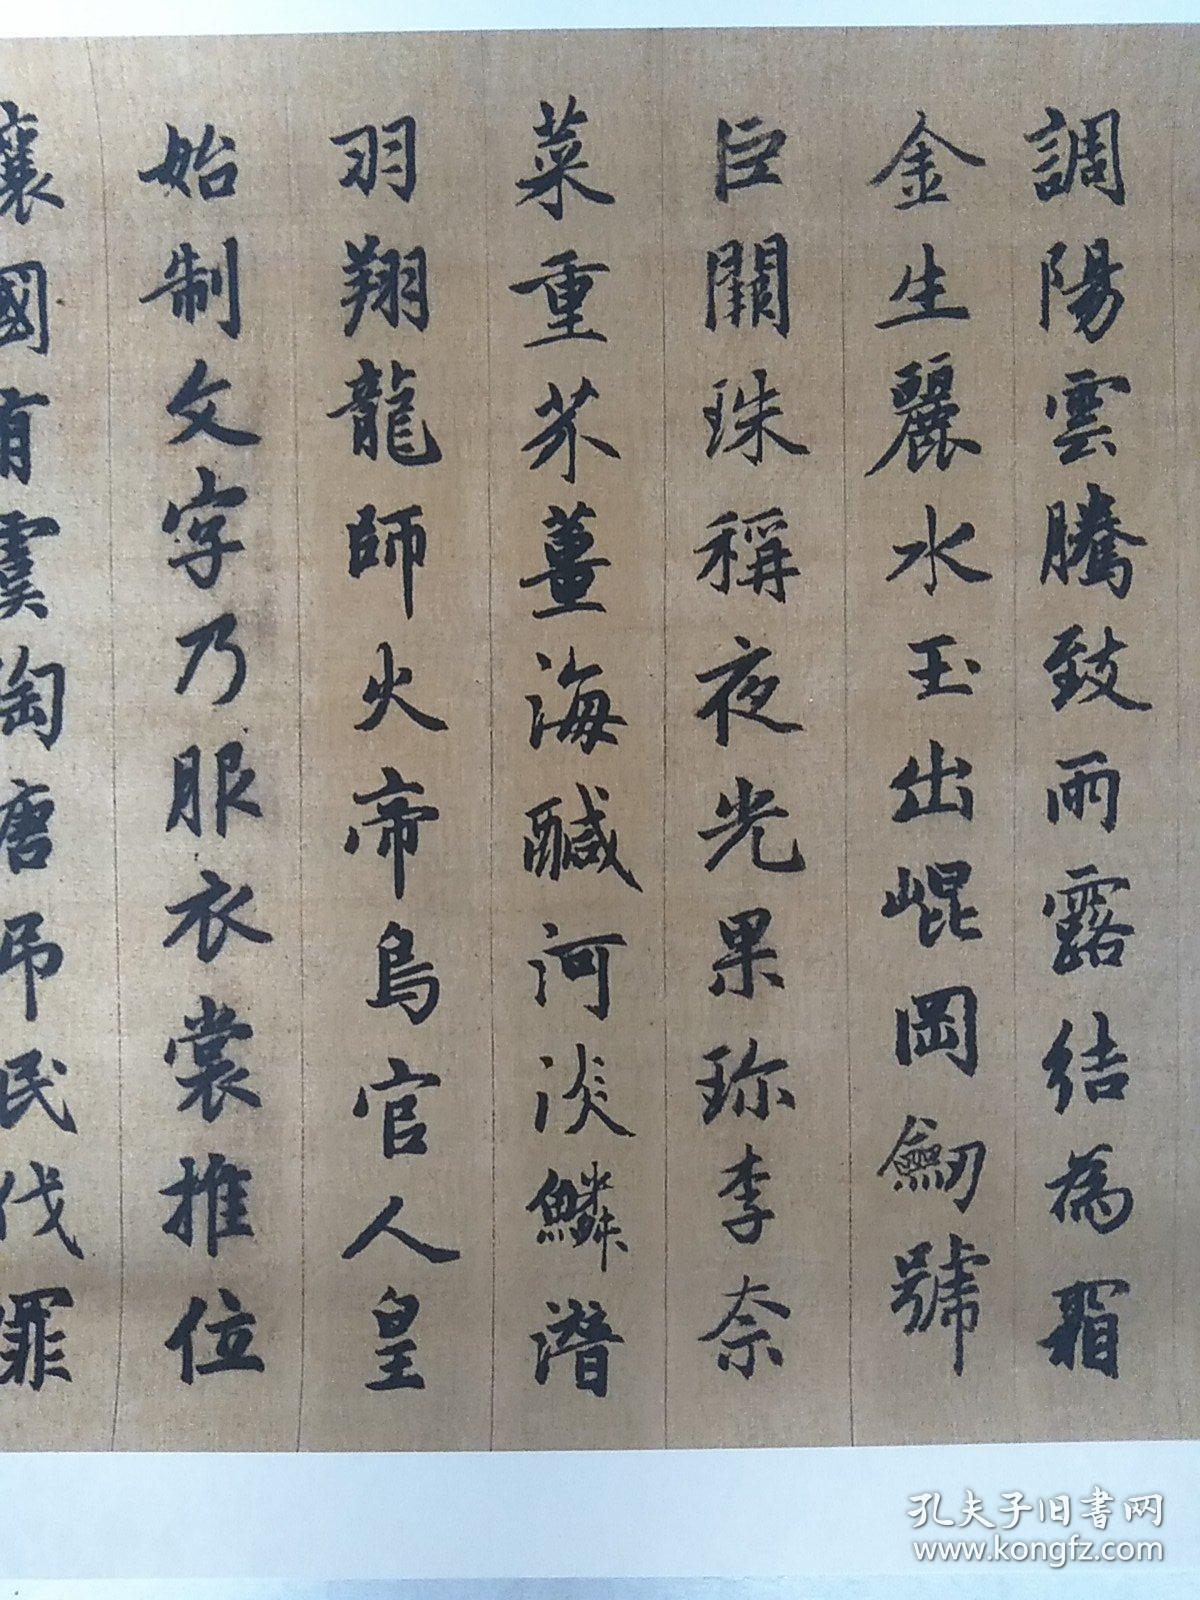 調陽雲騰致雨露結為霜
金生麗水玉出崐岡劒號
巨闕珠稱夜光果珎李奈
菜重芥薑海鹹河淡鱗潛
羽翔龍師火帝鳥官人皇
始制文字乃服衣裳推位
襄國有虞陶唐弔民伐罪
孔夫子旧書网
www.kongfz.com